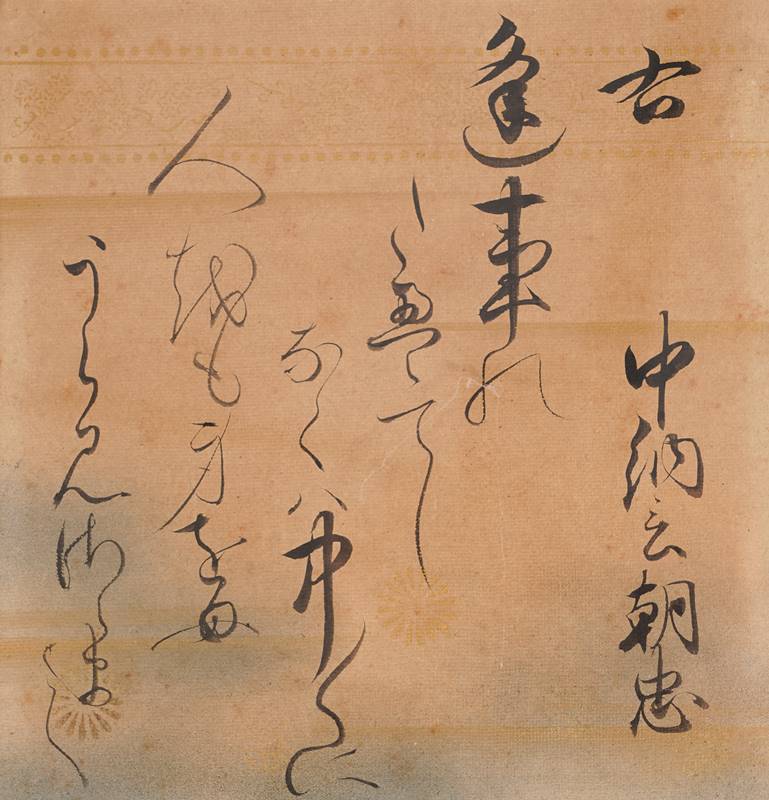 右　中納言朝忠
逢事の
たえてし
なくハ中〱に
人をも身をも
うら見さらまし